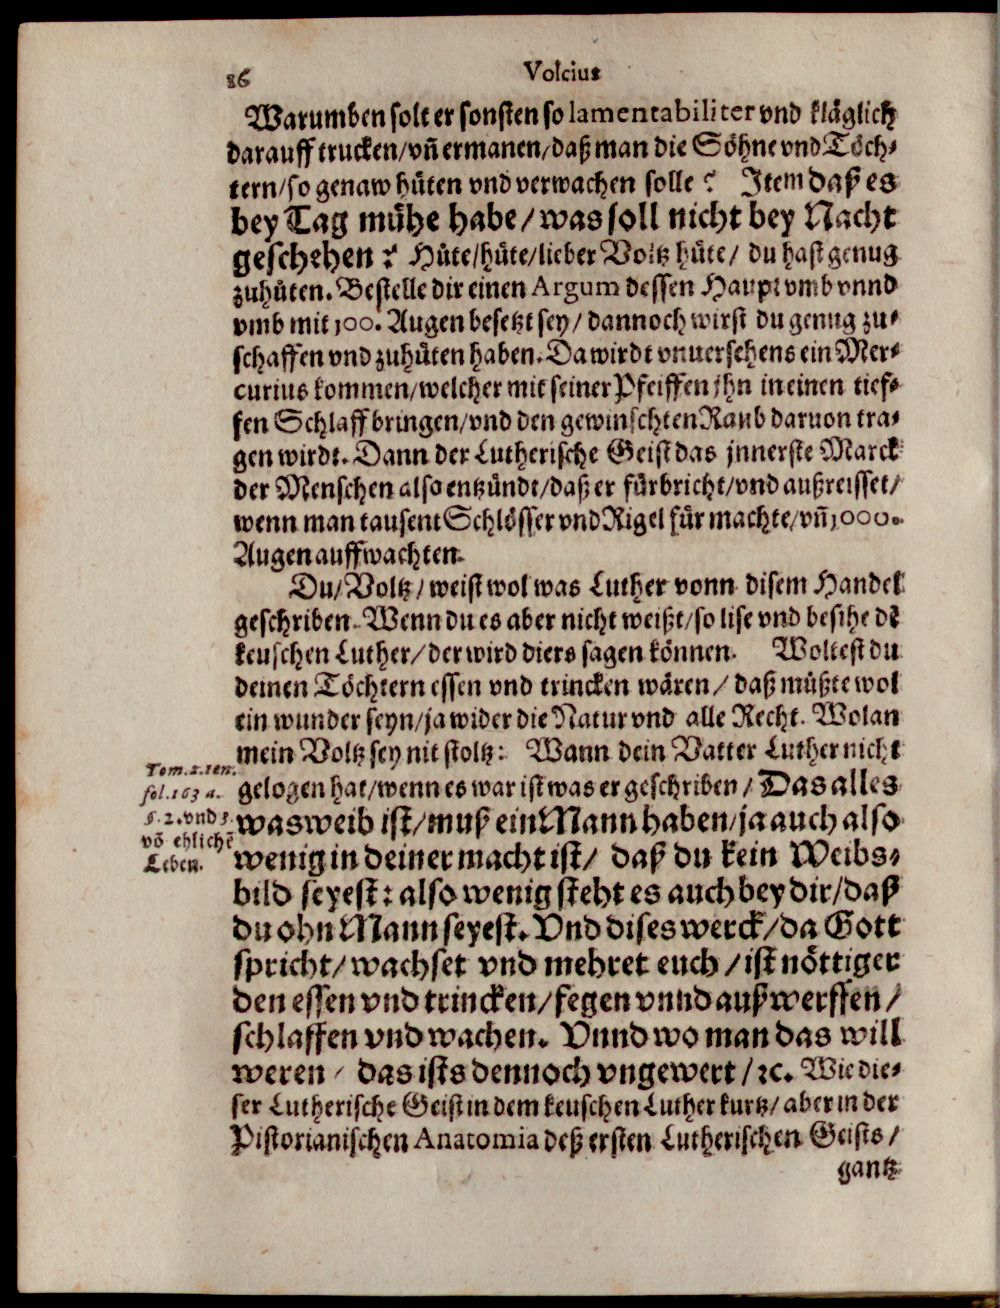 26
Volcius
Warumben solt er sonsten so lamentabiliter vnd kläglich
darauff trucken/vñ ermanen/daß man die Söhne vnd Töch-
tern/so genaw hüten vnd verwachen solle? Item daß es
bey Tag mühe habe/was soll nicht bey Nacht
geschehen? Hüte/hüte/lieber Voltz hüte/ du hast genug
zuhüten. Bestelle dir einen Argum dessen Haupt vmb vnnd
vmb mit 100. Augen besetzt sey/ dannoch wirst du genug zu-
schaffen vnd zuhüten haben. Da wirdt vnuersehens ein Mer-
curius kommen/welcher mit seiner Pfeiffen jhn in einen tief-
fen Schlaff bringen/vnd den gewinschten Raub daruon tra-
gen wirdt. Dann der Lutherische Geist das jnnerste Marck
der Menschen also entzündt/daß er fürbricht/vnd außreisset/
wenn man tausent Schlösser vnd Rigel für machte/vñ 1000.
Augen auffwachten.
Du/Voltz/weist wol was Luther vonn disem Handel
geschriben. Wenn du es aber nicht weißt/so lise vnd besihe dẽ
keuschen Luther/der wird diers sagen können. Woltest du
deinen Töchtern essen vnd trincken wären/daß müßte wol
ein wunder seyn/ja wider die Natur vnd alle Recht. Wolan
mein Voltz sey nit stoltz: Wann dein Vatter Luther nicht
gelogen hat/wenn es war ist was er geschriben/ Das alles
was weib ist/muß ein Mann haben/ja auch also
wenig in deiner macht ist/ daß du kein Weibs-
bild seyest: also wenig steht es auch bey dir/daß
du ohn Mann seyest. Vnd dises werck/da Gott
spricht/wachset vnd mehret euch/ist nöttiger
den essen vnd trincken/fegen vnnd außwerffen/
schlaffen vnd wachen. Vnnd wo man das will
weren/ das ists dennoch vngewert/ꝛc. Wie die-
ser Lutherische Geist in dem keuschen Luther kurtz/aber in der
Pistorianischen Anatomia deß ersten Lutherischen Geists/
gantz
Tom. 2. Ien.
fol. 163 a.
§. 2. vnd 3.
võ ehlichẽ
Leben.